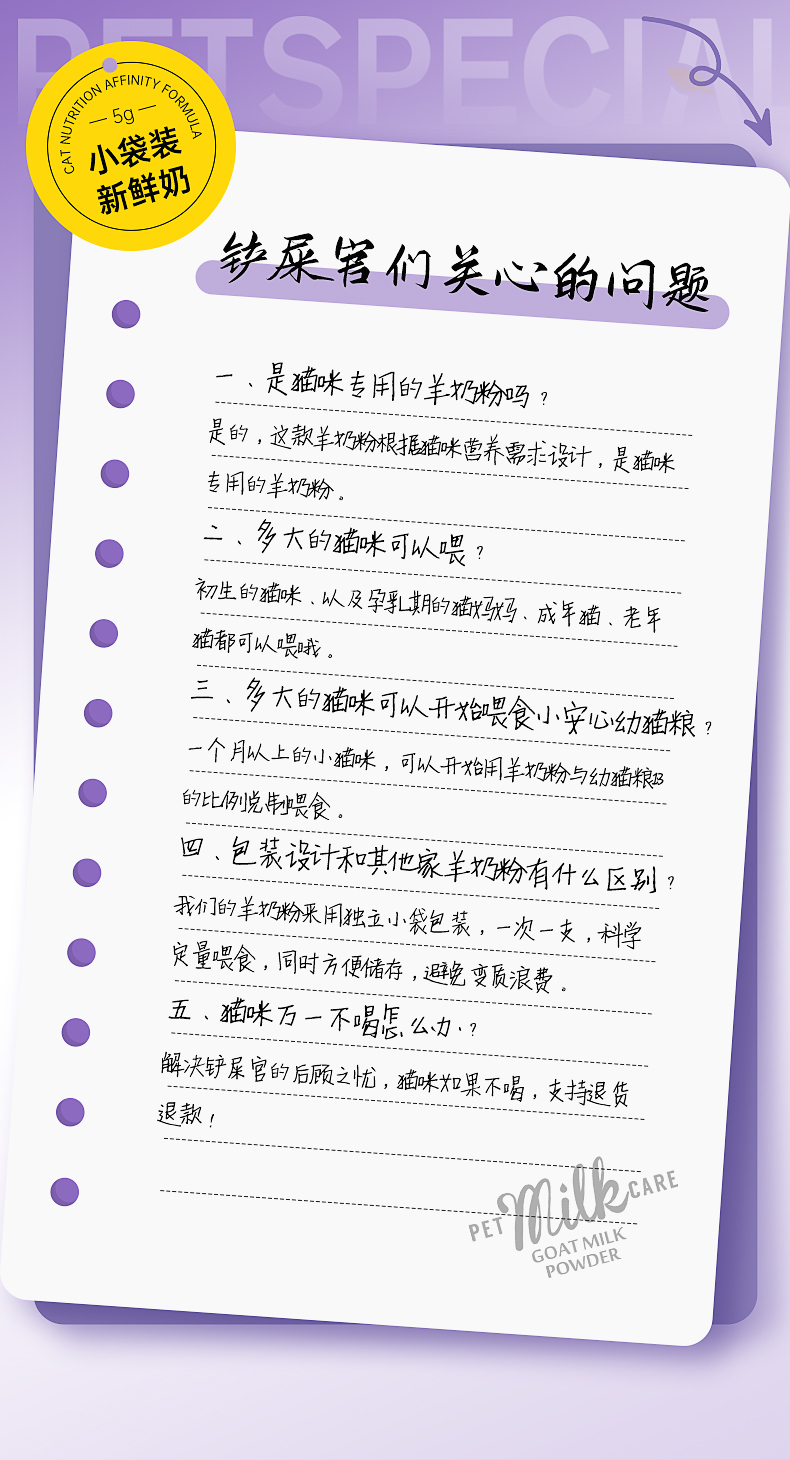 PETSPECIAL
CAT NUTRITION AFFINITY FORMULA
5g
小袋装
新鲜奶
铲屎官们关心的问题
一、是猫咪专用的羊奶粉吗？
是的，这款羊奶粉根据猫咪营养需求设计，是猫咪
专用的羊奶粉。
二、多大的猫咪可以喂？
初生的猫咪、以及孕乳期的猫妈妈、成年猫、老年
猫都可以喂哦。
三、多大的猫咪可以开始喂食小安心幼猫粮？
一个月以上的小猫咪，可以开始用羊奶粉与幼猫粮
的比例
喂食。
四、包装设计和其他家羊奶粉有什么区别？
我们的羊奶粉采用独立小袋包装，一次一支，科学
定量喂食，同时方便储存，避免变质浪费。
五、猫咪万一不喝怎么办？
解决铲屎官的后顾之忧，猫咪如果不喝，支持退货
退款！
PET Milk CARE
GOAT MILK
POWDER